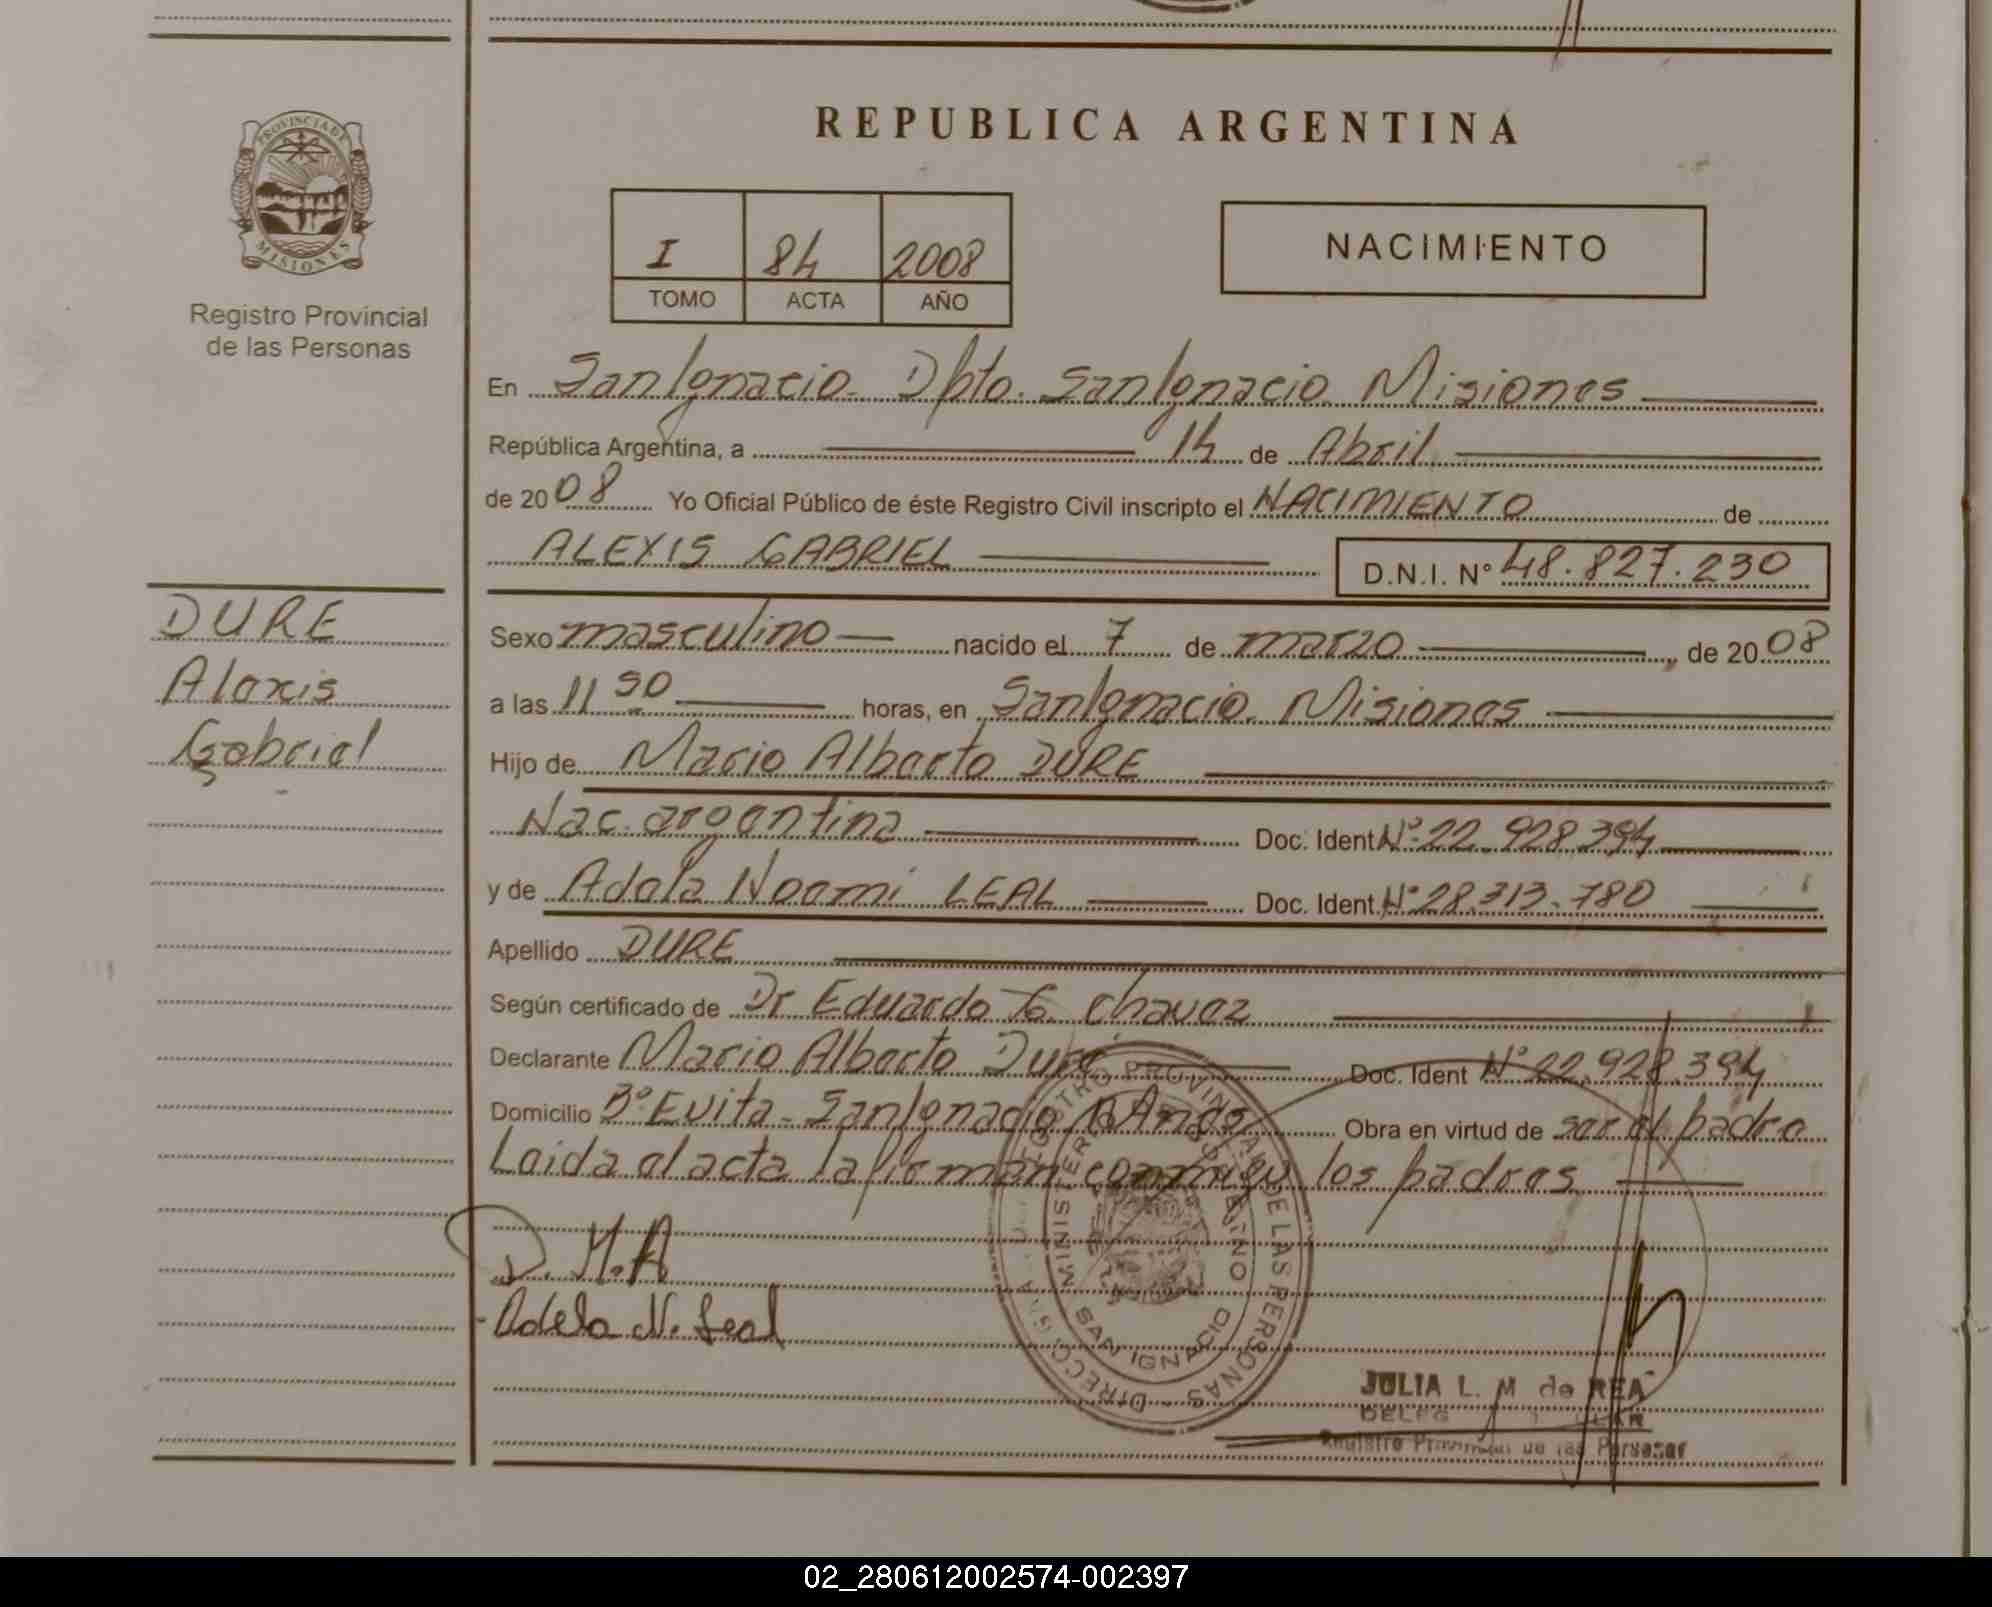 PROVINCIA DE
MISIONES
Registro Provincial
de las Personas
REPUBLICA ARGENTINA
I 84 2008
TOMO ACTA AÑO
NACIMIENTO
En San Ignacio Dpto. San Ignacio Misiones
República Argentina, a 14 de Abril
de 2008 Yo Oficial Público de éste Registro Civil inscripto el NACIMIENTO de
ALEXIS GABRIEL D.N.I. N° 48.827.230
DURE
Alexis
Gabriel
Sexo masculino nacido el 7 de marzo, de 2008
a las 11 50 horas, en San Ignacio Misiones
Hijo de Mario Alberto DURE
Nac. argentina Doc. Ident N° 22.928.394
y de Adela Noemi LEAL Doc. Ident. N° 28.313.780
Apellido DURE
Según certificado de Dr Eduardo G. Chavez
Declarante Mario Alberto Dure Doc. Ident N° 22.928.394
Domicilio B° Evita - San Ignacio Obra en virtud de ser el padre
Leida el acta la firman conmigo los padres
D. M. A
Adela N. Leal
REGISTRO PROVINCIAL DE LAS PERSONAS - DIRECC
MINISTERIO DE GOBIERNO
SAN IGNACIO
JULIA L. M de REA
Registro Provincial de las Personas
02_280612002574-002397